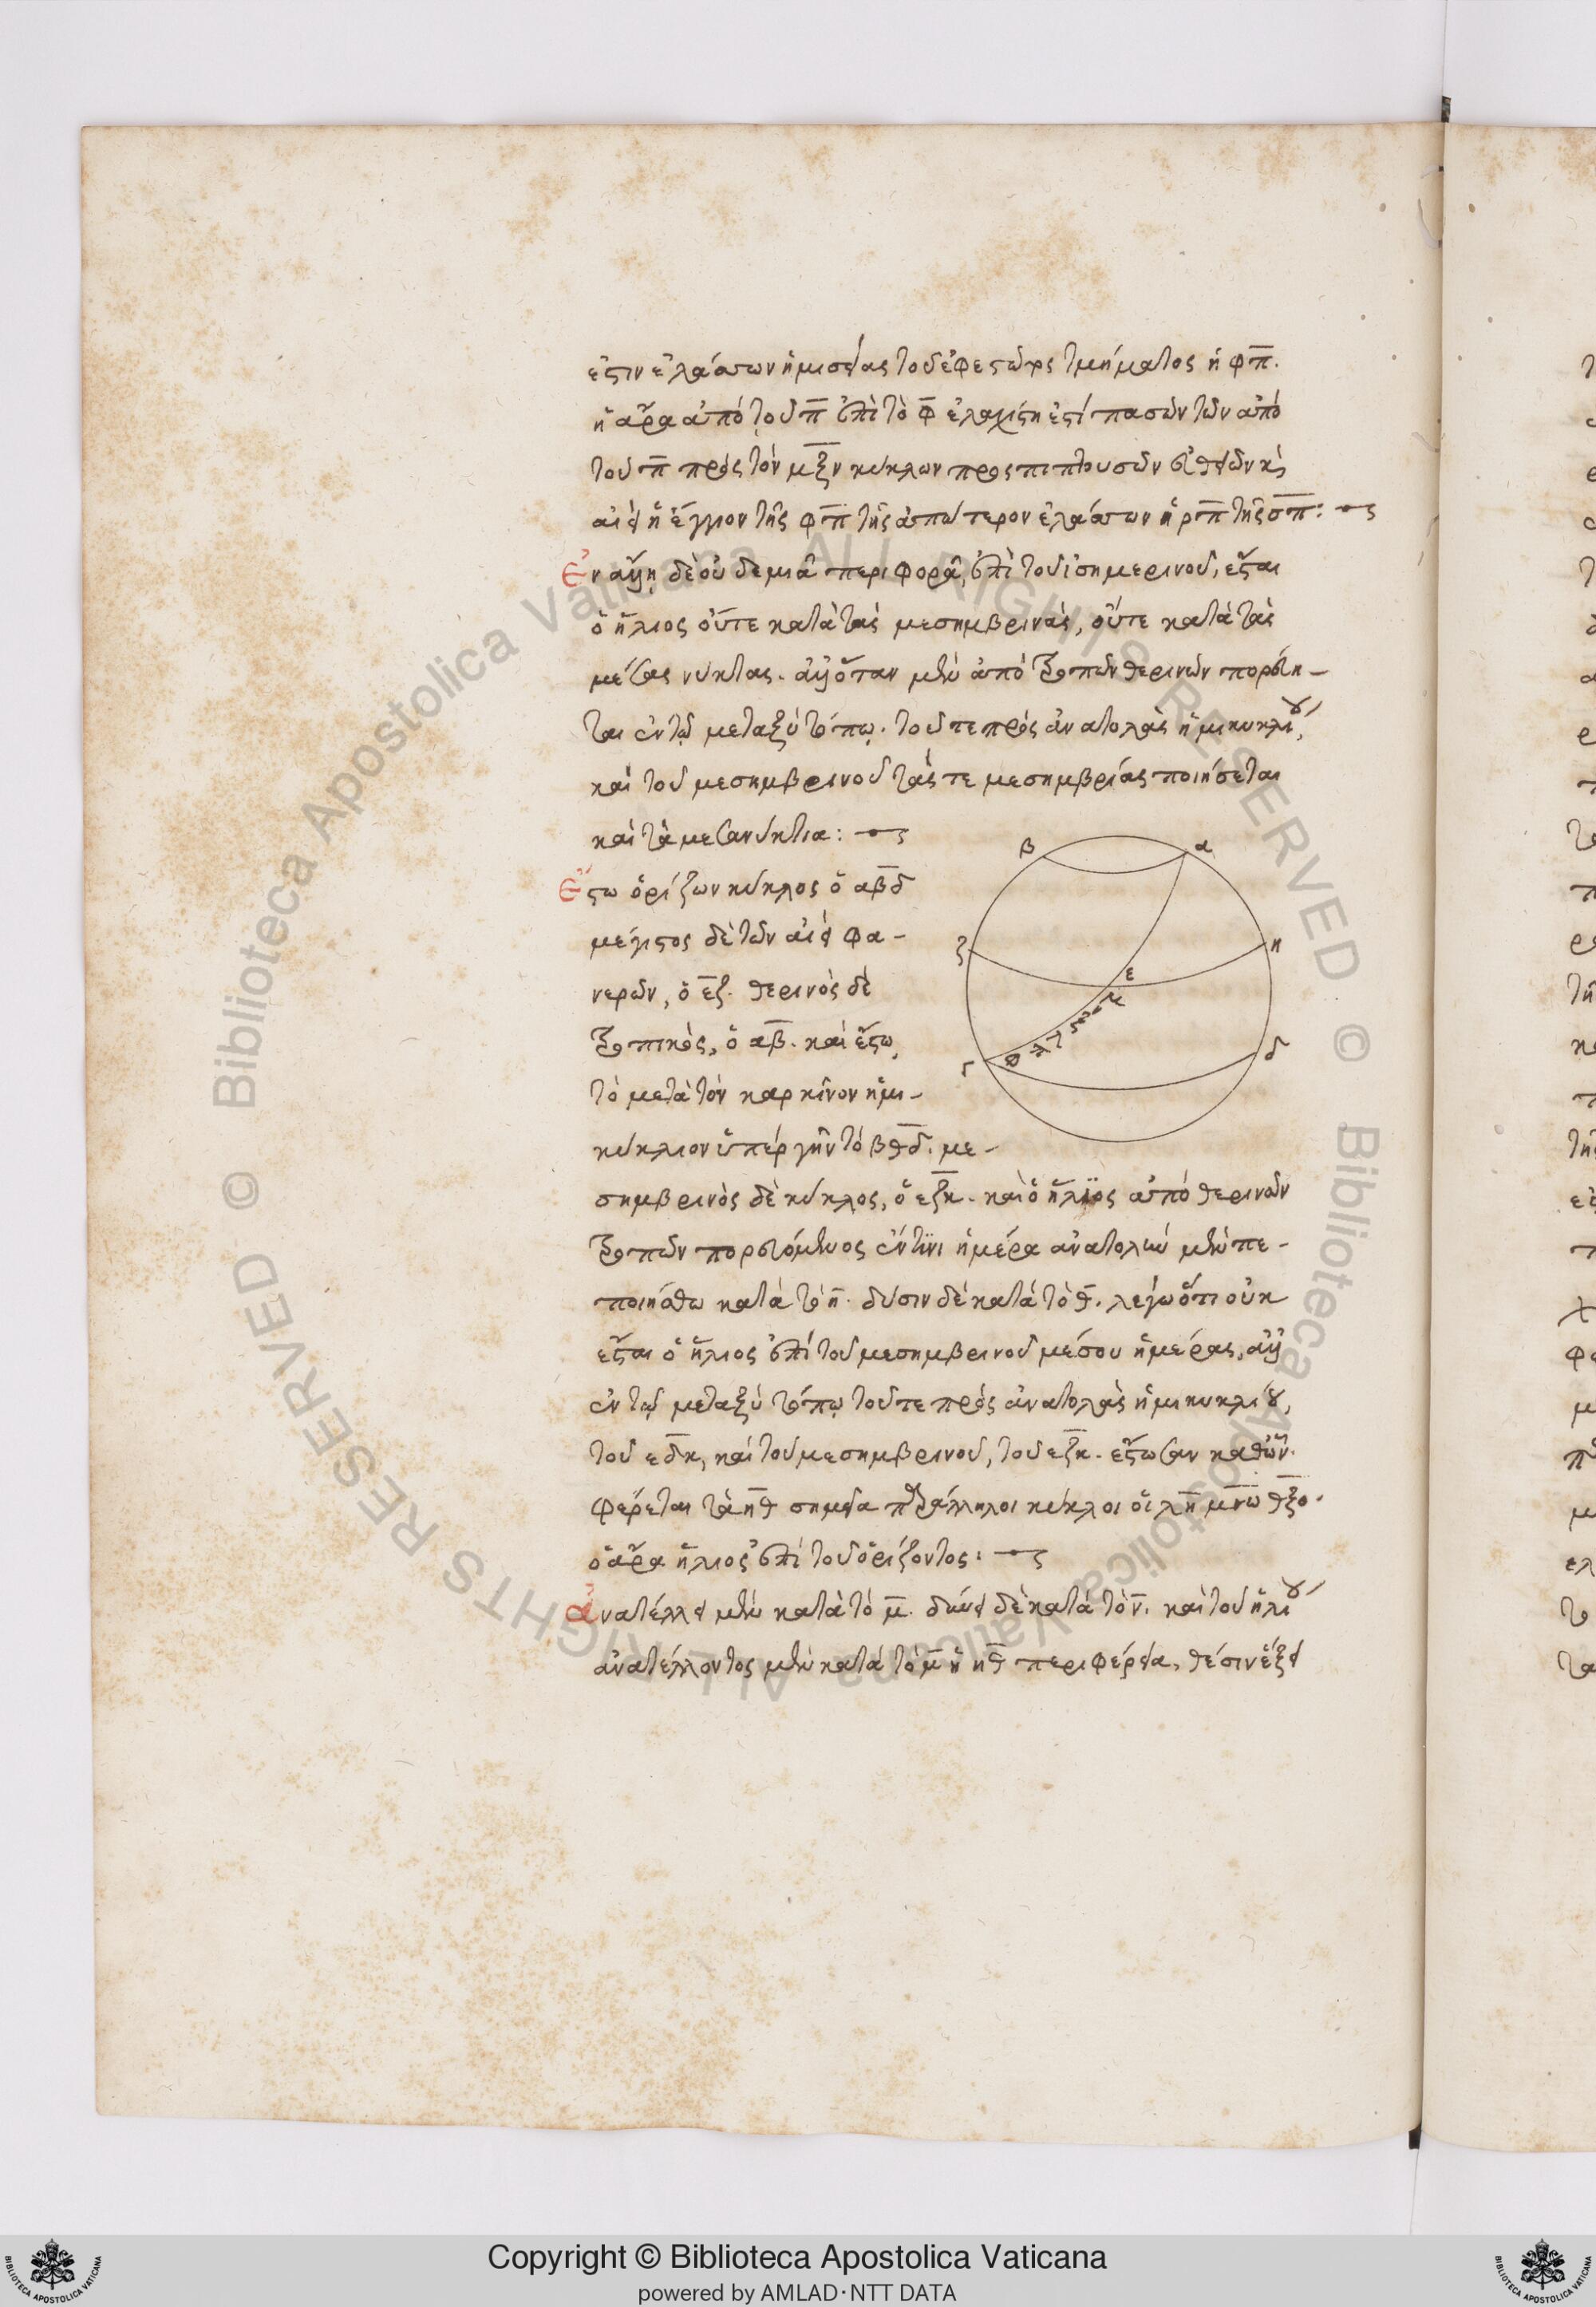 ἐστιν ἐλάσσων ἡμισείας τοῦ ἐφεστῶτος τμήματος ἡ φπ.
ἡ ἄρα ἀπὸ τοῦ π ἐπὶ τὸ φ ἐλαχίστη ἐστὶ πασῶν τῶν ἀπὸ
τοῦ π πρὸς τὸν μξν κύκλων προσπιπτουσῶν εὐθειῶν καὶ
αἰεὶ ἡ ἔγγιον τῆς φπ τῆς ἀπώτερον ἐλάσσων ἡ ρπ τῆς σπ:
Ἐν ἄλλῃ δὲ οὐδεμιᾷ περιφορᾷ, ἐπὶ τοῦ ἰσημερινοῦ, ἔσται
ὁ ἥλιος οὔτε κατὰ τὰς μεσημβρινὰς, οὔτε κατὰ τὰς
μέσας νύκτας. ἀλλ' ὅταν μὲν ἀπὸ τροπῶν θερινῶν πορεύη-
ται ἐν τῷ μεταξὺ τόπῳ. τοῦ τε πρὸς ἀνατολὰς ἡμικυκλίου,
καὶ τοῦ μεσημβρινοῦ τάς τε μεσημβρίας ποιήσεται
καὶ τὰ μεσανύκτια:
Ἔστω ὁρίζων κύκλος ὁ αβδ
μέγιστος δὲ τῶν αἰεὶ φα-
νερῶν, ὁ εζ. θερινὸς δὲ
τροπικὸς, ὁ αβ. καὶ ἔστω
τὸ μετὰ τὸν καρκῖνον ἡμι-
κύκλιον ὑπὲρ γῆν τὸ βθδ. με-
σημβρινὸς δὲ κύκλος, ὁ εζκ. καὶ ὁ ἥλιος ἀπὸ θερινῶν
τροπῶν πορευόμενος ἔν τινι ἡμέρα ἀνατολὴν μὲν πε-
ποιήσθω κατὰ τὸ η. δύσιν δὲ κατὰ τὸ θ. λέγω ὅτι οὐκ
ἔσται ὁ ἥλιος ἐπὶ τοῦ μεσημβρινοῦ μέσου ἡμέρας, ἀλλ'
ἐν τῷ μεταξὺ τόπῳ τοῦ τε πρὸς ἀνατολὰς ἡμικυκλίου,
τοῦ εδκ, καὶ τοῦ μεσημβρινοῦ, τοῦ εζκ. ἔστωσαν καθ' ὧν
φέρεται τὰ ηθ σημεῖα παράλληλοι κύκλοι οἱ λη μνω θξο.
ὁ ἄρα ἥλιος ἐπὶ τοῦ ὁρίζοντος:
Ἀνατέλλει μὲν κατὰ τὸ μ. δύνει δὲ κατὰ τὸ ν. καὶ τοῦ ἡλίου
ἀνατέλλοντος μὲν κατὰ τὸ μ ἡ ηθ περιφέρεια, θέσιν ἕξει
β α
ζ η
ε
γ δ
Copyright © Biblioteca Apostolica Vaticana
powered by AMLAD·NTT DATA